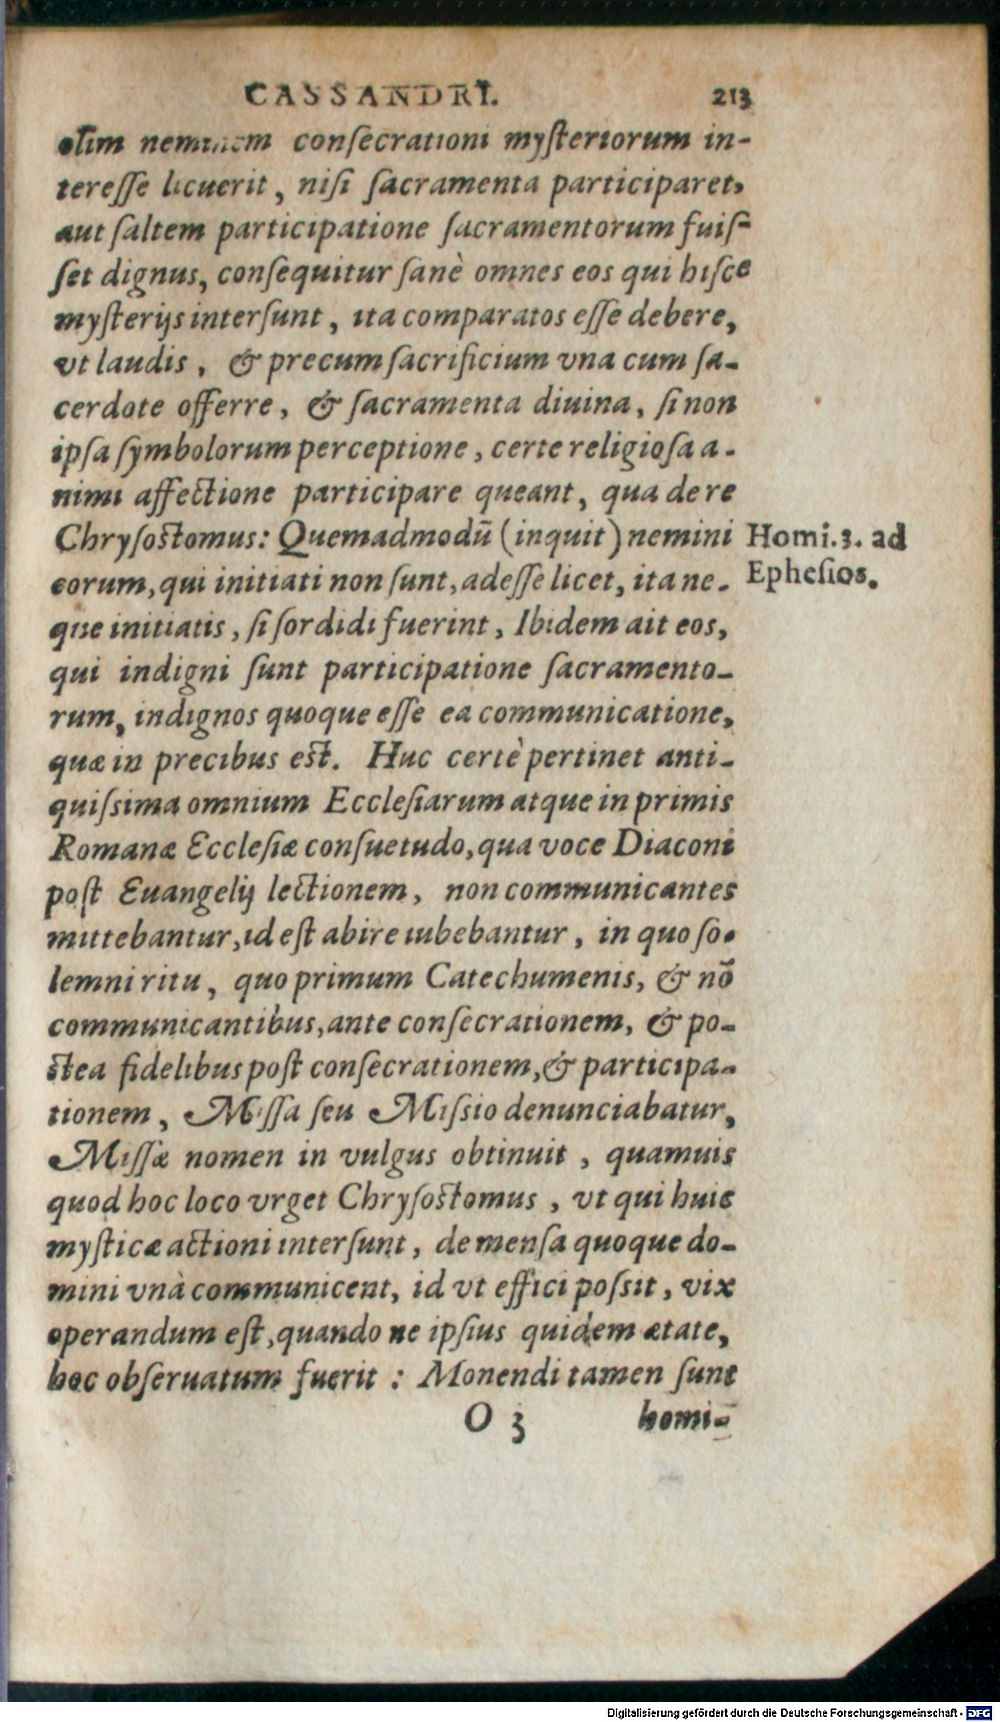 CASSANDRI. 213
olim neminem consecrationi mysteriorum in-
teresse licuerit, nisi sacramenta participaret,
aut saltem participatione sacramentorum fuis-
set dignus, consequitur sanè omnes eos qui hisce
mysterijs intersunt, ita comparatos esse debere,
vt laudis, & precum sacrificium vna cum sa-
cerdote offerre, & sacramenta diuina, si non
ipsa symbolorum perceptione, certe religiosa a-
nimi affectione participare queant, qua de re
Chrysostomus: Quemadmodū (inquit) nemini
eorum, qui initiati non sunt, adesse licet, ita ne-
que initiatis, si sordidi fuerint, Ibidem ait eos,
qui indigni sunt participatione sacramento-
rum, indignos quoque esse ea communicatione,
quæ in precibus est. Huc certè pertinet anti-
quissima omnium Ecclesiarum atque in primis
Romanæ Ecclesiæ consuetudo, qua voce Diaconi
post Euangelij lectionem, non communicantes
mittebantur, id est abire iubebantur, in quo so-
lemni ritu, quo primum Catechumenis, & nō
communicantibus, ante consecrationem, & po-
stea fidelibus post consecrationem, & participa-
tionem, Missa seu Missio denunciabatur,
Missæ nomen in vulgus obtinuit, quamuis
quod hoc loco vrget Chrysostomus, vt qui huic
mysticæ actioni intersunt, de mensa quoque do-
mini vnà communicent, id vt effici possit, vix
operandum est, quando ne ipsius quidem ætate,
hoc obseruatum fuerit: Monendi tamen sunt
O 3 homi-
Homi. 3. ad
Ephesios.
Digitalisierung gefördert durch die Deutsche Forschungsgemeinschaft - DFG